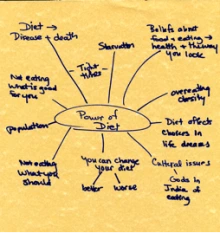 Diet →
Disease + death
Tight
times
Starvation
Beliefs about
food + eating →
health + the way
you look
Not eating
what is good
for you
overeating
obesity
Power of
Diet
population
Diet effects
choices in
life dreams
Not eating
what you
should
You can change
your diet
better worse
Cultural issues
Gods in
India +
eating